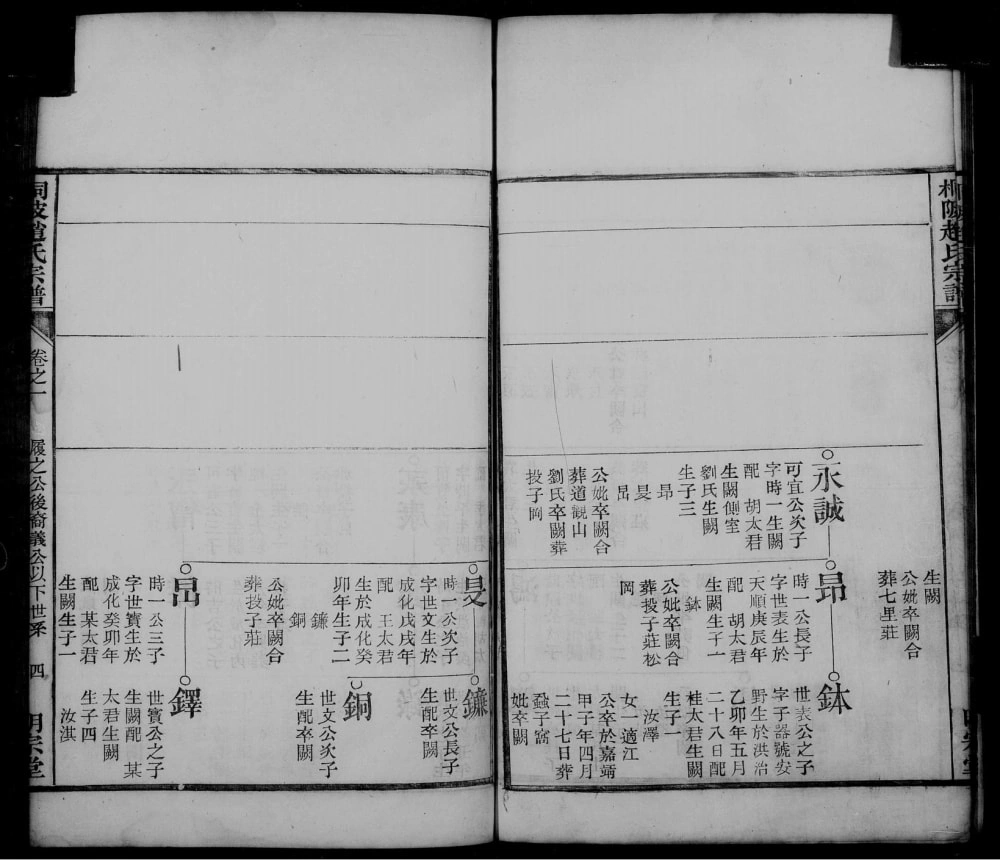 趙氏宗譜
生闕
公妣卒闕合
葬七里莊
永誠
可宜公次子
字時一生闕
配 胡太君
生闕側室
劉氏生闕
生子三
昂
旻
昌
公妣卒闕合
葬道觀山
劉氏卒闕葬
投子岡
昂
時一公長子
字世表生於
天順庚辰年
配 胡太君
生闕生子一
鉢
公妣卒闕合
葬投子莊松
岡
鉢
世表公之子
字子器號安
野生於洪治
乙卯年五月
二十八日配
桂太君生闕
生子一
汝澤
女一適江
公卒於嘉靖
甲子年四月
二十七日葬
蝨子窩
妣卒闕
旻
時一公次子
字世文生於
成化戊戌年
配 王太君
生於成化癸
卯年生子二
鐮
銅
公妣卒闕合
葬投子莊
鐮
世文公長子
生配卒闕
銅
世文公次子
生配卒闕
時一公三子
字世寳生於
成化癸卯年
配 某太君
生闕生子一
鐸
世寳公之子
生闕配 某
太君生闕
生子四
汝淇
桐陂趙氏宗譜
卷之一
履之公後裔議公以下世系
四
明宗堂